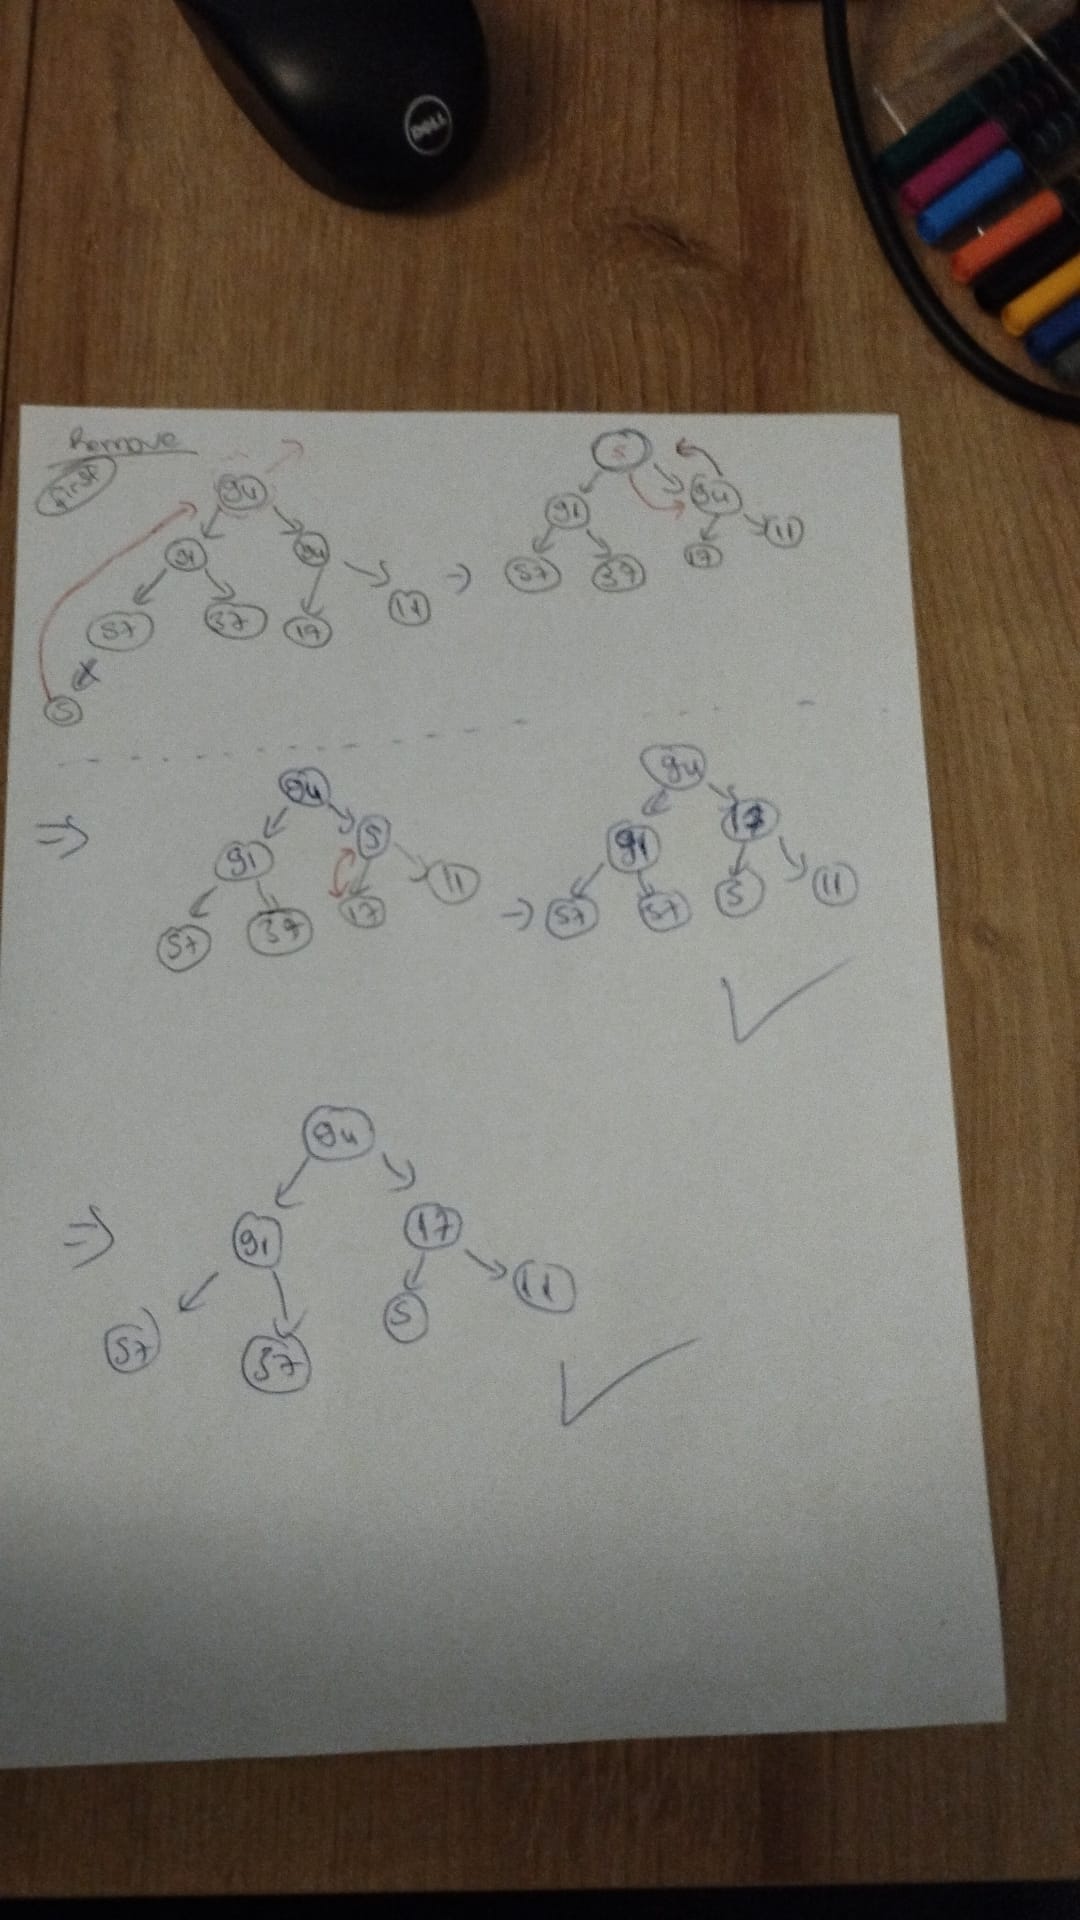 DELL
Remove
first
94
91 94
57 37 17 11
5
→
5
91 94
57 37 17 11
⇒
94
91 5
57 37 17 11
→
94
91 17
57 37 5 11
⇒
94
91 17
57 37 5 11